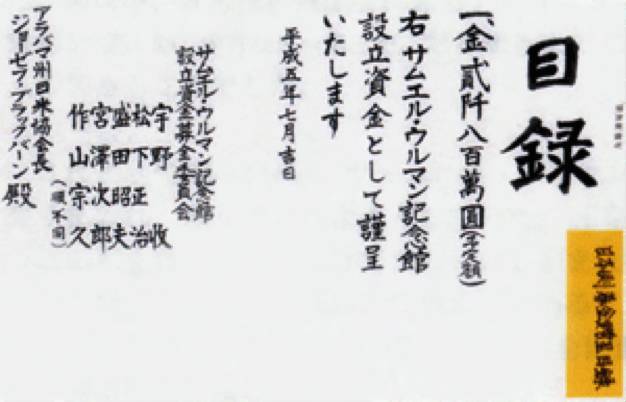 目録
一、金貳阡八百萬圓(予定額)
右サムエル・ウルマン記念館
設立資金として謹呈
いたします
平成五年七月吉日
サムエル・ウルマン記念館
設立資金募金委員会
宇野 收
松下正治
盛田昭夫
宮澤次郎
作山宗久
(順不同)
アラバマ州日米協会長
ジョーゼフ・ブラックバーン殿